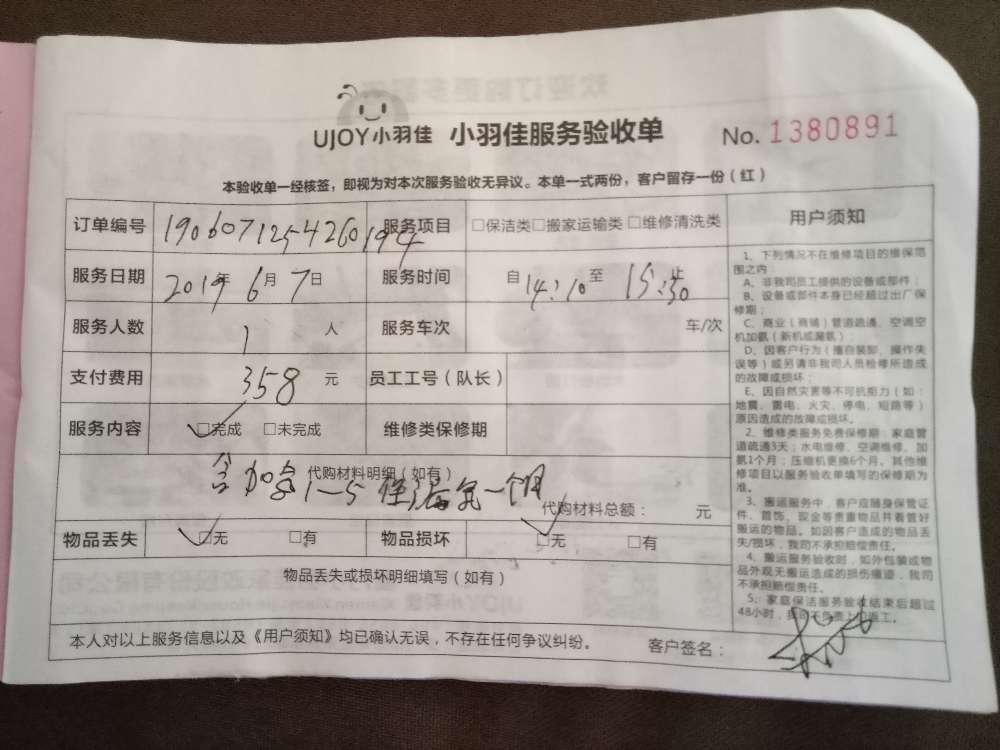 UJOY小羽佳 小羽佳服务验收单 No. 1380891
本验收单一经核签，即视为对本次服务验收无异议。本单一式两份，客户留存一份（红）
订单编号 1906071254260194 服务项目 □保洁类□搬家运输类 □维修清洗类
服务日期 2019年 6月 7日 服务时间 自14:10至 15:30止
服务人数 1 人 服务车次 车/次
支付费用 358 元 员工工号（队长）
服务内容 □完成 □未完成 维修类保修期
代购材料明细（如有）
代购材料总额： 元
物品丢失 □无 □有 物品损坏 □无 □有
物品丢失或损坏明细填写（如有）
本人对以上服务信息以及《用户须知》均已确认无误，不存在任何争议纠纷。 客户签名：
用户须知
1、下列情况不在维修项目的维保范
围之内：
A、非我司员工提供的设备或部件；
B、设备或部件本身已经超过出厂保
修期；
C、商业（商铺）管道疏通、空调空
机加氨（新机或漏氨）；
D、因客户行为（擅自装卸、操作失
误等）或另请非我司人员检修所造成
的故障或损坏；
E、因自然灾害等不可抗拒力（如：
地震、雷电、火灾、停电、短路等）
原因造成的故障或损坏。
2、维修类服务免费保修期：家庭管
道疏通3天；水电维修、空调维修、加
氨1个月；压缩机更换6个月。其他维
修项目以服务验收单填写的保修期为
准。
3、搬运服务中，客户应随身保管证
件、首饰、现金等贵重物品并看管好
搬运的物品。如因客户造成的物品丢
失/损坏，我司不承担赔偿责任。
4、搬运服务验收时，如外包装或物
品外观无搬运造成的损伤痕迹，我司
不承担赔偿责任。
5、家庭保洁服务验收结束后超过
48小时，